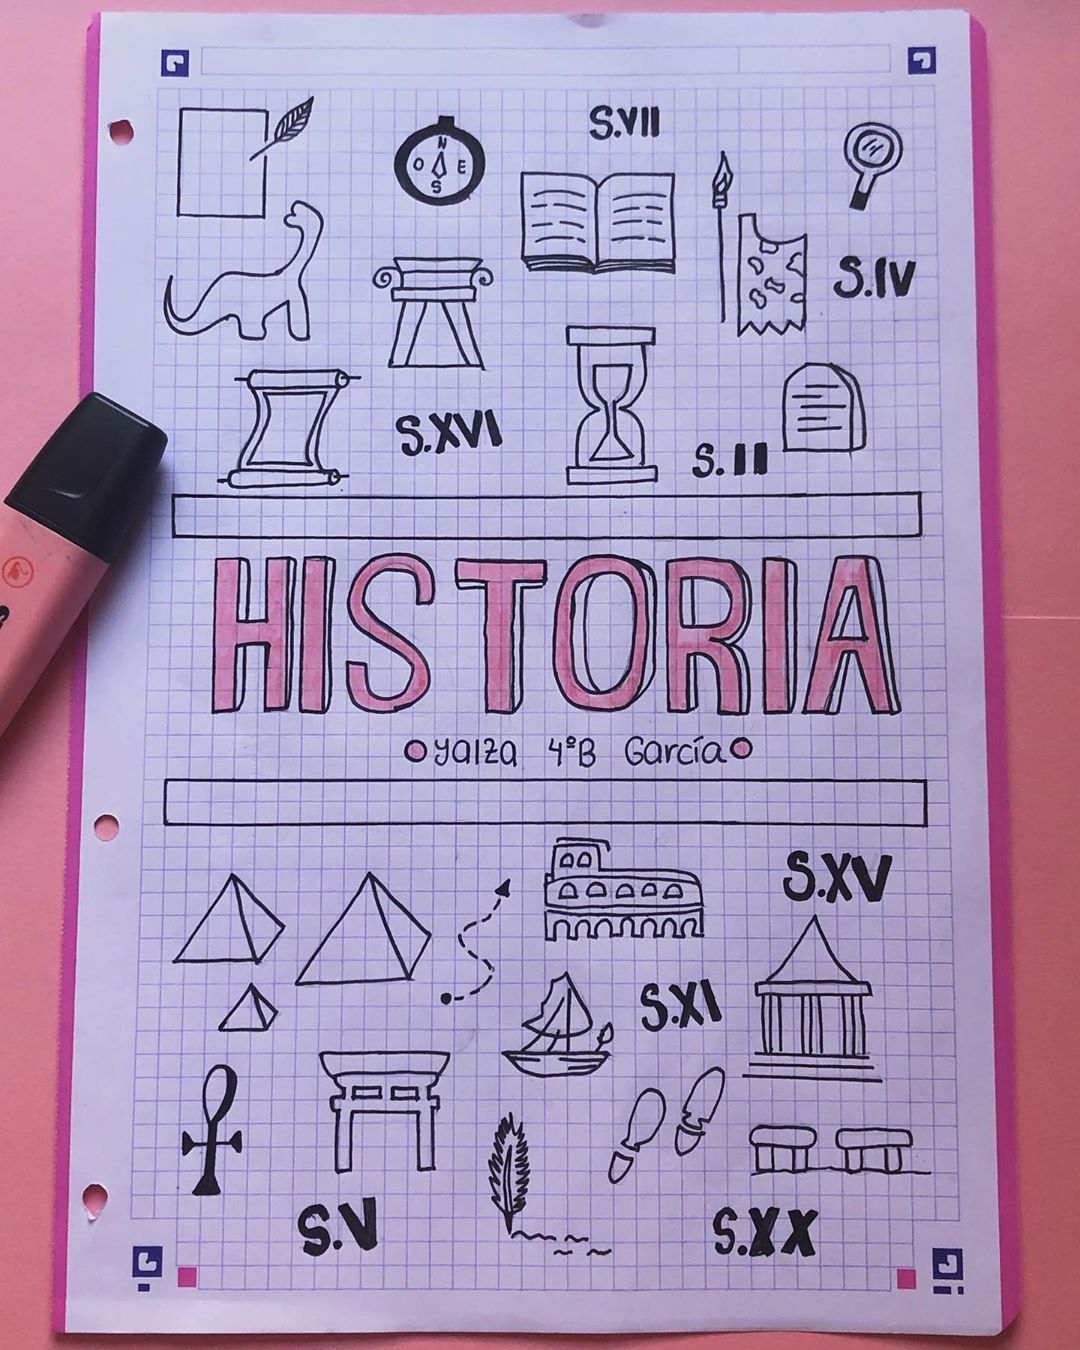 S.VII
N
O E
S
S.IV
S.XVI
S.II
HISTORIA
Yaiza 4ºB García
S.XV
S.XI
S.V
S.XX